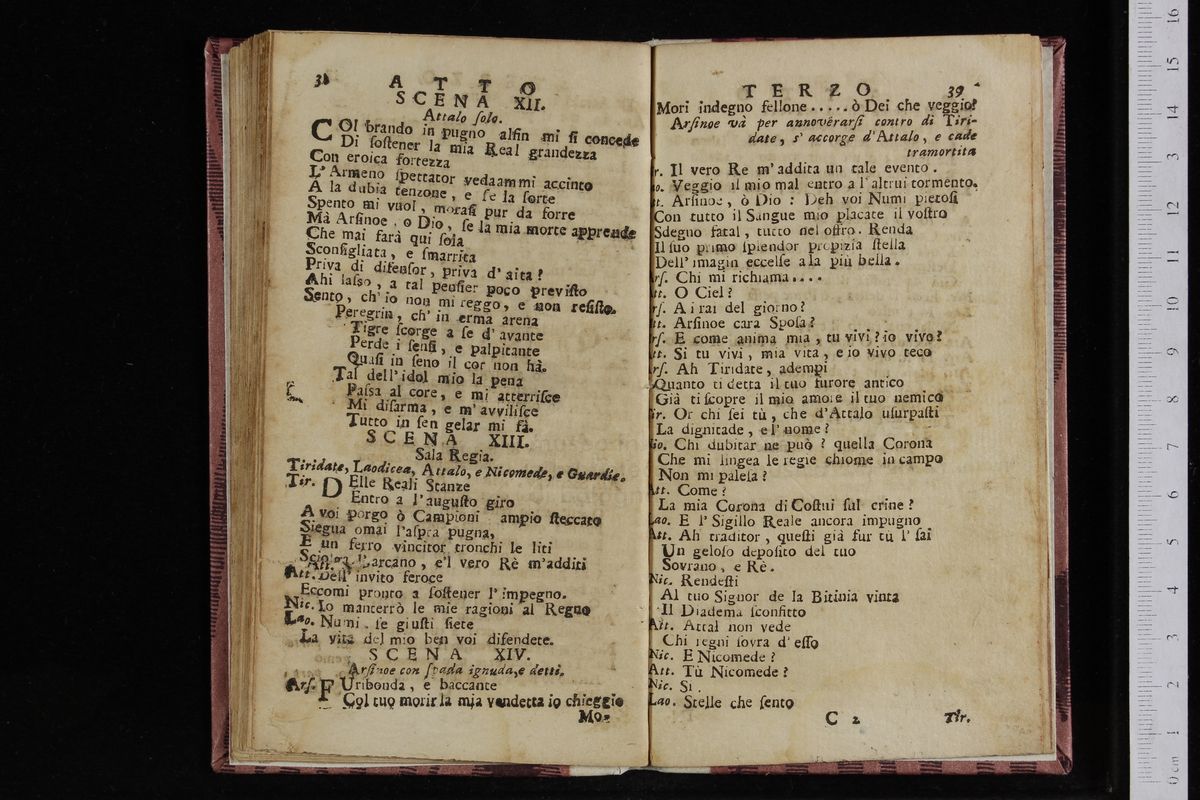 38
A T T O
SCENA XII.
Attalo ſolo.
COl brando in pugno alfin mi ſi concede
Di ſoſtener la mia Real grandezza
Con eroica fortezza
L'Armeno ſpettator vedaammi accinto
A la dubia tenzone, e ſe la ſorte
Spento mi vuol, moraſi pur da forre
Mà Arſinoe, o Dio, ſe la mia morte apprende
Che mai farà qui ſola
Sconſigliata, e ſmarrita
Priva di difenſor, priva d'aita?
Ahi laſso, a tal penſier poco previſto
Sento, ch'io non mi reggo, e non reſiſto.
Peregrin, ch'in erma arena
Tigre ſcorge a ſe d'avante
Perde i ſenſi, e palpitante
Quaſi in ſeno il cor non hà.
Tal dell'idol mio la pena
Paſsa al core, e mi atterriſce
Mi diſarma, e m'avviliſce
Tutto in ſen gelar mi fà.
SCENA XIII.
Sala Regia.
Tiridate, Laodicea, Attalo, e Nicomede, e Guardie.
Tir. DElle Reali Stanze
Entro a l'auguſto giro
A voi porgo ò Campioni ampio ſteccato
Siegua omai l'aſpra pugna,
E un ferro vincitor tronchi le liti
l'arcano, e'l vero Rè m'additi
Att. Dell'invito feroce
Eccomi pronto a ſoſtener l'impegno.
Nic. Io manterrò le mie ragioni al Regno
Lao. Numi, ſe giuſti ſiete
La vita del mio ben voi difendete.
SCENA XIV.
Arſinoe con ſpada ignuda, e detti.
Arſ. FUribonda, e baccante
Col tuo morir la mia vendetta io chieggio
Mo-
TERZO 39
Mori indegno fellone ..... ò Dei che veggio!
Arſinoe và per annoverarſi contro di Tiri-
date, s'accorge d'Attalo, e cade
tramortita
r. Il vero Re m'addita un tale evento.
ao. Veggio il mio mal entro a l'altrui tormento.
tt. Arſinoe, ò Dio: Deh voi Numi pietoſi
Con tutto il Sangue mio placate il voſtro
Sdegno fatal, tutto nel oſtro. Renda
Il ſuo primo ſplendor propizia ſtella
Dell'imagin eccelſe ala più bella.
rſ. Chi mi richiama....
tt. O Ciel?
rſ. A i rai del giorno?
tt. Arſinoe cara Spoſa?
rſ. E come anima mia, tu vivi? io vivo?
tt. Si tu vivi, mia vita, e io vivo teco
rſ. Ah Tiridate, adempi
Quanto ti detta il tuo furore antico
Già ti ſcopre il mio amore il tuo nemico
ir. Or chi ſei tù, che d'Attalo uſurpaſti
La dignitade, e l'nome?
io. Chi dubitar ne può? quella Corona
Che mi lingea le regie chiome in campo
Non mi paleſa?
Att. Come?
La mia Corona di Coſtui ſul crine?
Lao. E l'Sigillo Reale ancora impugno
Att. Ah traditor, queſti già fur tu l'ſai
Un geloſo depoſito del tuo
Sovrano, e Rè.
Nic. Rendeſti
Al tuo Signor de la Bitinia vinta
Il Diadema ſconfitto
Att. Attal non vede
Chi regni ſovra d'eſſo
Nic. E Nicomede?
Att. Tù Nicomede?
Nic. Si.
Lao. Stelle che ſento
C 2 Tir.